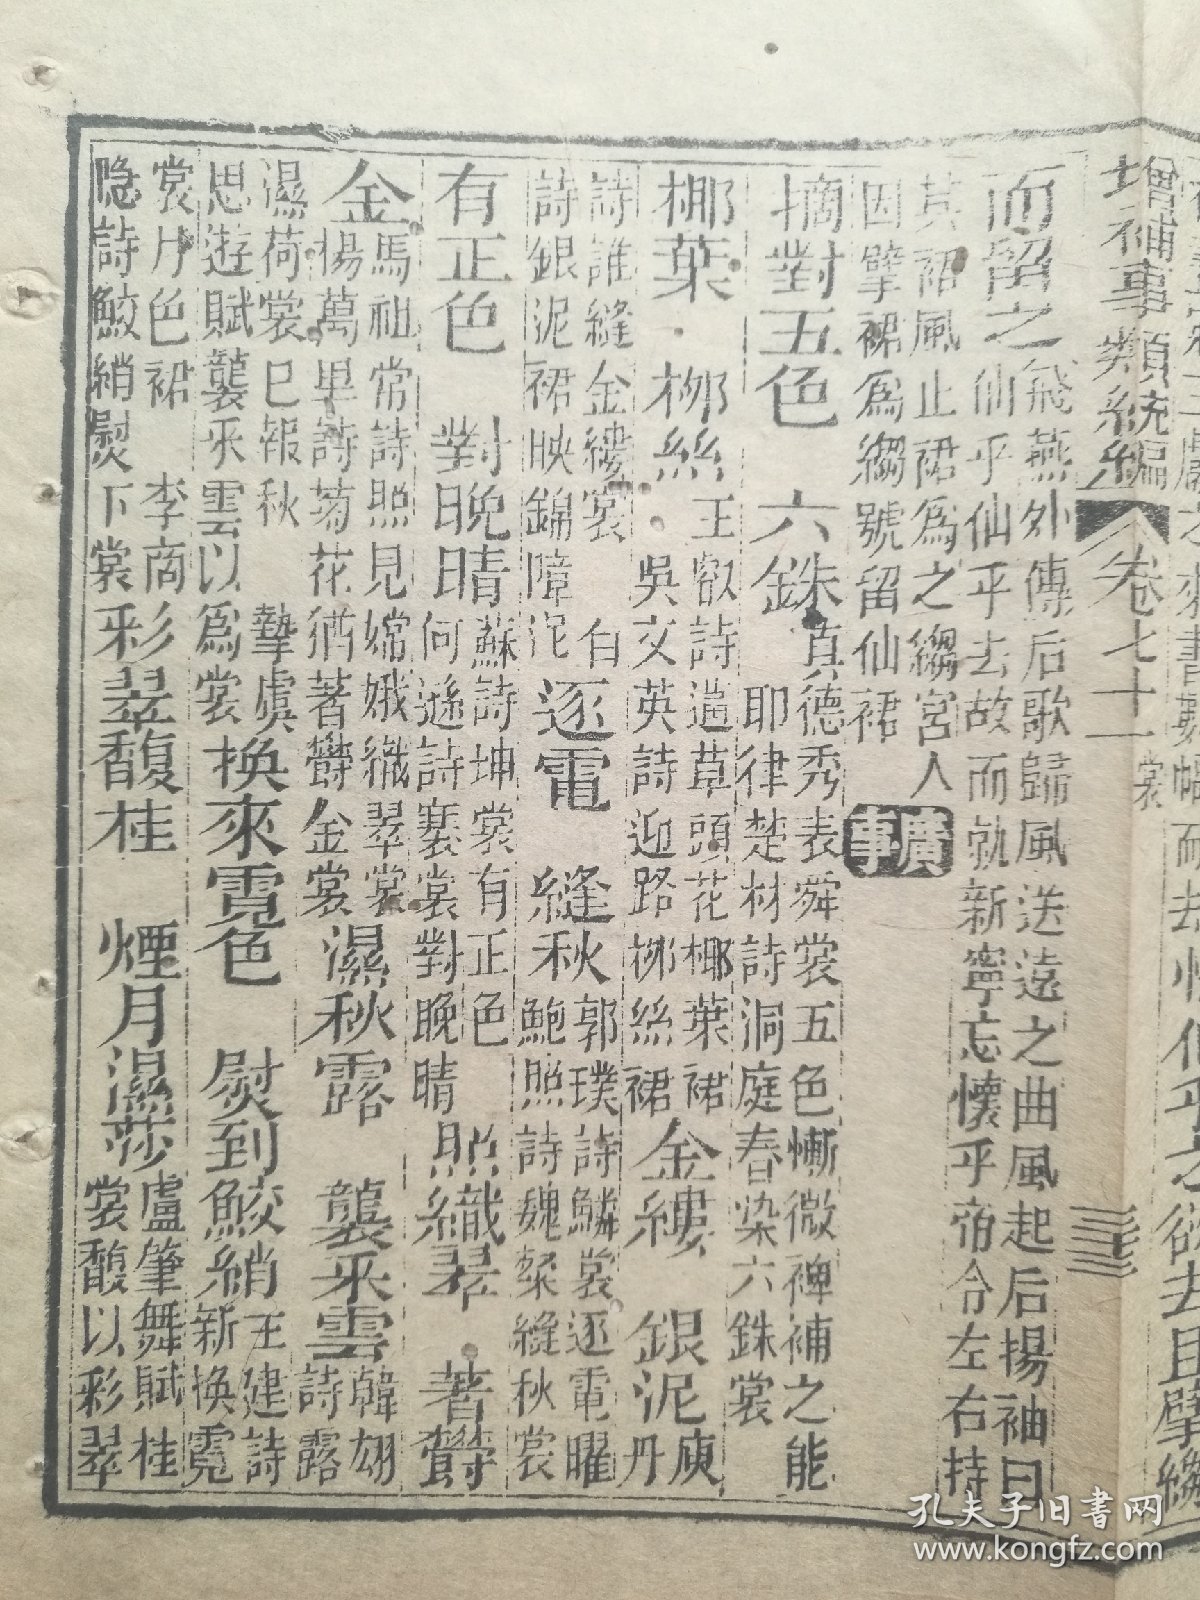 增補事類統編 卷七十一 裳
而留之
飛燕外傳后歌歸風送遠之曲風起后揚袖曰
仙乎仙乎去故而就新寧忘懷乎帝令左右持
其裙風止裙為之縐宮人
因擘裙為縐號留仙裙
廣事
摘對五色 六銖
真德秀表舜裳五色慚微裨補之能
耶律楚材詩洞庭春染六銖裳
椰葉 柳絲
王叡詩遊草頭花椰葉裙
吳文英詩迎路柳絲裙
金縷 銀泥
庾
丹
詩誰縫金縷裳 白
詩銀泥裙映錦障泥
逐電 縫秋
郭璞詩鱗裳逐電曜
鮑照詩魏粲縫秋裳
有正色 對晚晴
蘇詩坤裳有正色
何遜詩褰裳對晚晴
照織翠 著欝
金
馬祖常詩照見嫦娥織翠裳
楊萬里詩菊花猶著欝金裳
濕秋露 襲采雲
韓翃
詩露
濕荷裳已報秋 摯虞
思遊賦襲采雲以為裳
換來霓色 熨到鮫綃
王建詩
新換霓
裳月色裙 李商
隐詩鮫綃熨下裳
彩翠馥桂 煙月濕莎
盧肇舞賦桂
裳馥以彩翠
孔夫子旧书网
www.kongfz.com